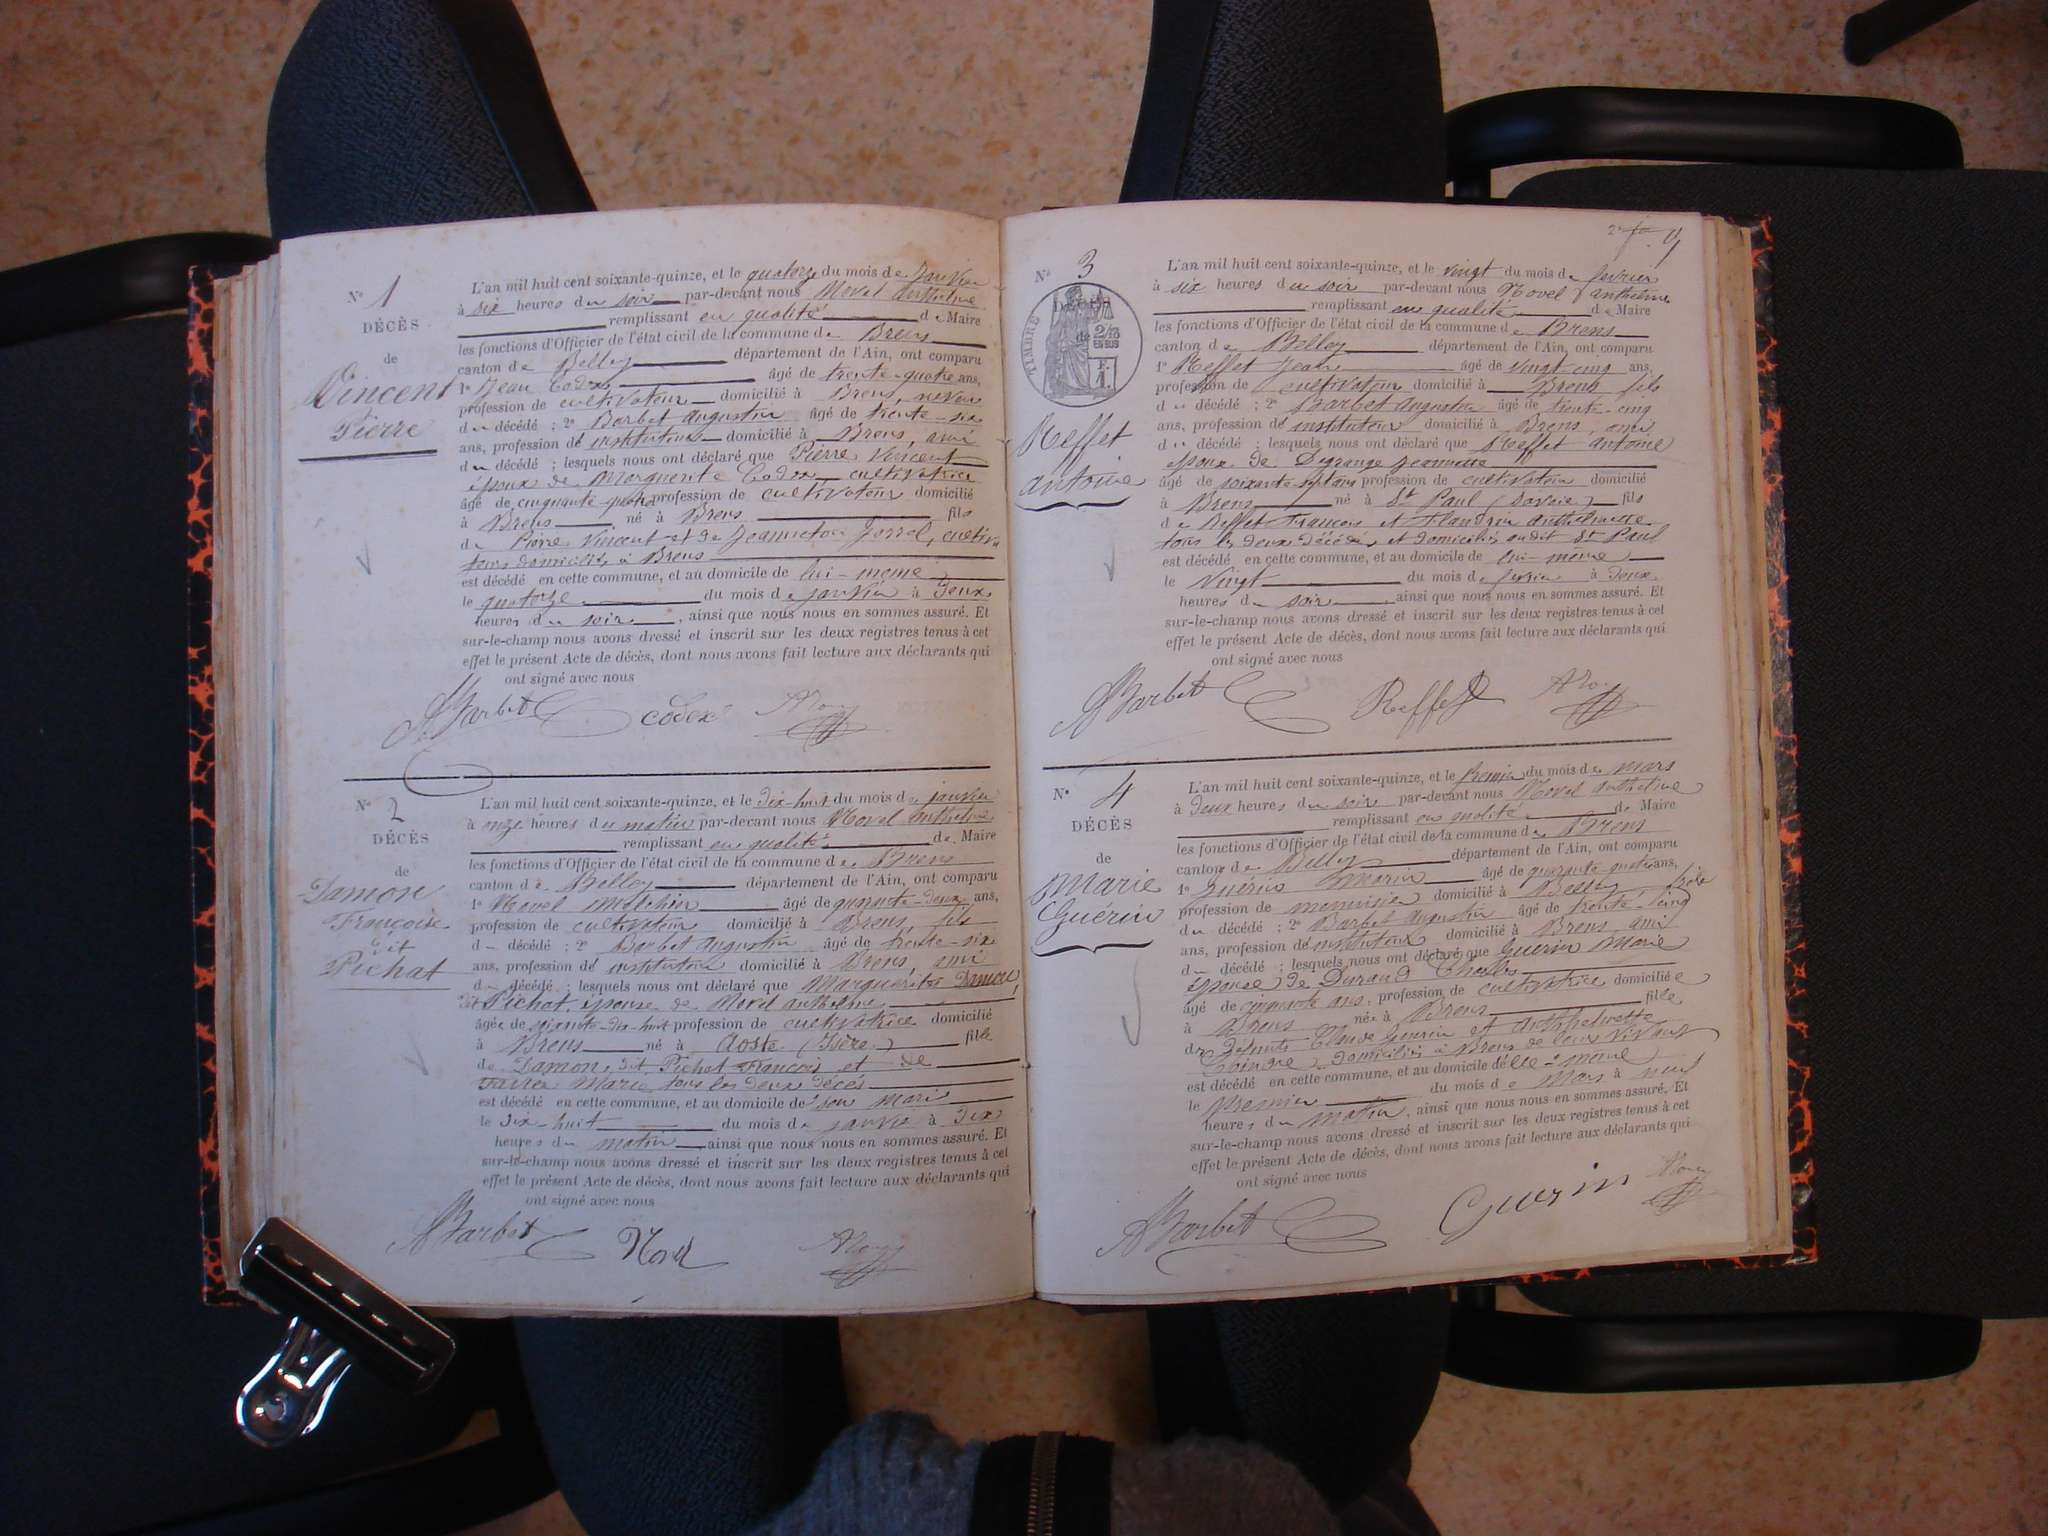 N° 1
DÉCÈS
de
Vincent
Pierre
L'an mil huit cent soixante-quinze, et le quatorze du mois de Janvier
à six heures du soir par-devant nous Novel Anthelme
remplissant en qualité de Maire
les fonctions d'Officier de l'état civil de la commune de Brens
canton de Belley département de l'Ain, ont comparu
1° Jean Codex âgé de trente-quatre ans,
profession de cultivateur domicilié à Brens, neveu
du décédé ; 2° Barbet Augustin âgé de trente-six
ans, profession de instituteur domicilié à Brens, ami
du décédé ; lesquels nous ont déclaré que Pierre Vincent
époux de Marguerite Codex cultivatrice
âgé de cinquante profession de cultivateur domicilié
à Brens né à Brens fils
de Pierre Vincent et de Jeanneton
tous domiciliés à Brens
est décédé en cette commune, et au domicile de lui-même
le quatorze du mois de janvier à deux
heures du soir, ainsi que nous nous en sommes assuré. Et
sur-le-champ nous avons dressé et inscrit sur les deux registres tenus à cet
effet le présent Acte de décès, dont nous avons fait lecture aux déclarants qui
ont signé avec nous
ABarbet codex
N° 2
DÉCÈS
de
Damon
Françoise
dit
Pichat
L'an mil huit cent soixante-quinze, et le dix-huit du mois de janvier
à onze heures du matin par-devant nous Novel Anthelme
remplissant en qualité de Maire
les fonctions d'Officier de l'état civil de la commune de Brens
canton de Belley département de l'Ain, ont comparu
1° Novel Melchior âgé de quarante-deux ans,
profession de cultivateur domicilié à Brens, fils
d décédé ; 2° Barbet Augustin âgé de trente-six
ans, profession de instituteur domicilié à Brens, ami
d décédé ; lesquels nous ont déclaré que Marguerite Damon,
dit Pichat, épouse de Novel Anthelme
âgée de soixante-dix-huit profession de cultivatrice domicilié
à Brens né à Aoste (Isère) fille
de Damon, dit Pichat François et de
Marie tous les deux décés
est décédé en cette commune, et au domicile de son mari
le dix-huit du mois de janvier à dix
heures du matin ainsi que nous nous en sommes assuré. Et
sur-le-champ nous avons dressé et inscrit sur les deux registres tenus à cet
effet le présent Acte de décès, dont nous avons fait lecture aux déclarants qui
ont signé avec nous
ABarbet Novel
N° 3
DÉCÈS
TIMBRE
de 2/10
EN SUS
F.
1.
Reffet
Antoine
L'an mil huit cent soixante-quinze, et le vingt du mois de février
à six heures du soir par-devant nous Novel Anthelme
remplissant en qualité de Maire
les fonctions d'Officier de l'état civil de la commune de Brens
canton de Belley département de l'Ain, ont comparu
1° Reffet Jean âgé de vingt-cinq ans,
profession de cultivateur domicilié à Brens fils
du décédé ; 2° Barbet Augustin âgé de trente-cinq
ans, profession de instituteur domicilié à Brens, ami
du décédé ; lesquels nous ont déclaré que Reffet Antoine
époux de Degrange Jeannette
âgé de soixante-sept ans profession de cultivateur domicilié
à Brens né à St Paul (Savoie) fils
de Reffet François et Flandrin Anthelmette
tous les deux décédés et domiciliés audit St Paul
est décédé en cette commune, et au domicile de lui-même
le vingt du mois de février à deux
heures du soir ainsi que nous nous en sommes assuré. Et
sur-le-champ nous avons dressé et inscrit sur les deux registres tenus à cet
effet le présent Acte de décès, dont nous avons fait lecture aux déclarants qui
ont signé avec nous
ABarbet Reffet
N° 4
DÉCÈS
de
Marie
Guérin
L'an mil huit cent soixante-quinze, et le premier du mois de mars
à deux heures du soir par-devant nous Novel Anthelme
remplissant en qualité de Maire
les fonctions d'Officier de l'état civil de la commune de Brens
canton de Belley département de l'Ain, ont comparu
1° Guérin âgé de quarante-quatre ans,
profession de menuisier domicilié à Belley frère
du décédé ; 2° Barbet Augustin âgé de trente-cinq
ans, profession de instituteur domicilié à Brens, ami
d décédé ; lesquels nous ont déclaré que Guérin Marie
épouse de Durand Charles
âgé de cinquante ans profession de cultivatrice domiciliée
à Brens née à Brens fille
de défunts Claude Guérin et Anthelmette
domiciliés à Brens de leur vivant
est décédé en cette commune, et au domicile d'elle-même
le Premier du mois de Mars à neuf
heures du matin, ainsi que nous nous en sommes assuré. Et
sur-le-champ nous avons dressé et inscrit sur les deux registres tenus à cet
effet le présent Acte de décès, dont nous avons fait lecture aux déclarants qui
ont signé avec nous
ABarbet Guérin